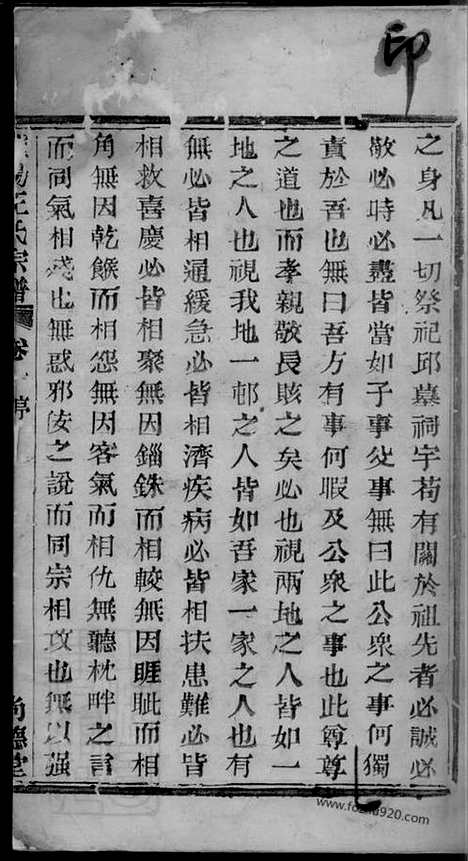 印
之身凡一切祭祀邱墓祠宇苟有關於祖先者必誠必
敬必時必盡皆當如子事父事無曰此公衆之事何獨
責於吾也無曰吾方有事何暇及公衆之事也此尊尊
之道也而孝親敬長賅之矣必也視兩地之人皆如一
地之人也視我地一邨之人皆如吾家一家之人也有
無必皆相通緩急必皆相濟疾病必皆相扶患難必皆
相救喜慶必皆相聚無因錙銖而相較無因睚眦而相
角無因乾餱而相怨無因客氣而相仇無聽枕畔之言
而同氣相殘也無惑邪侫之說而同宗相攻也無以强
王氏宗譜 卷一 序
尚德堂
www.fozhu920.com